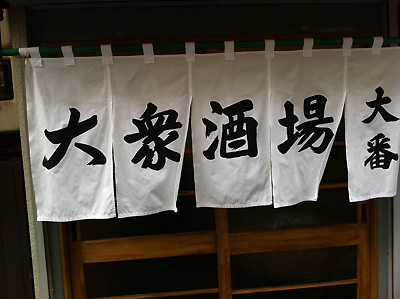 大衆酒場
大番